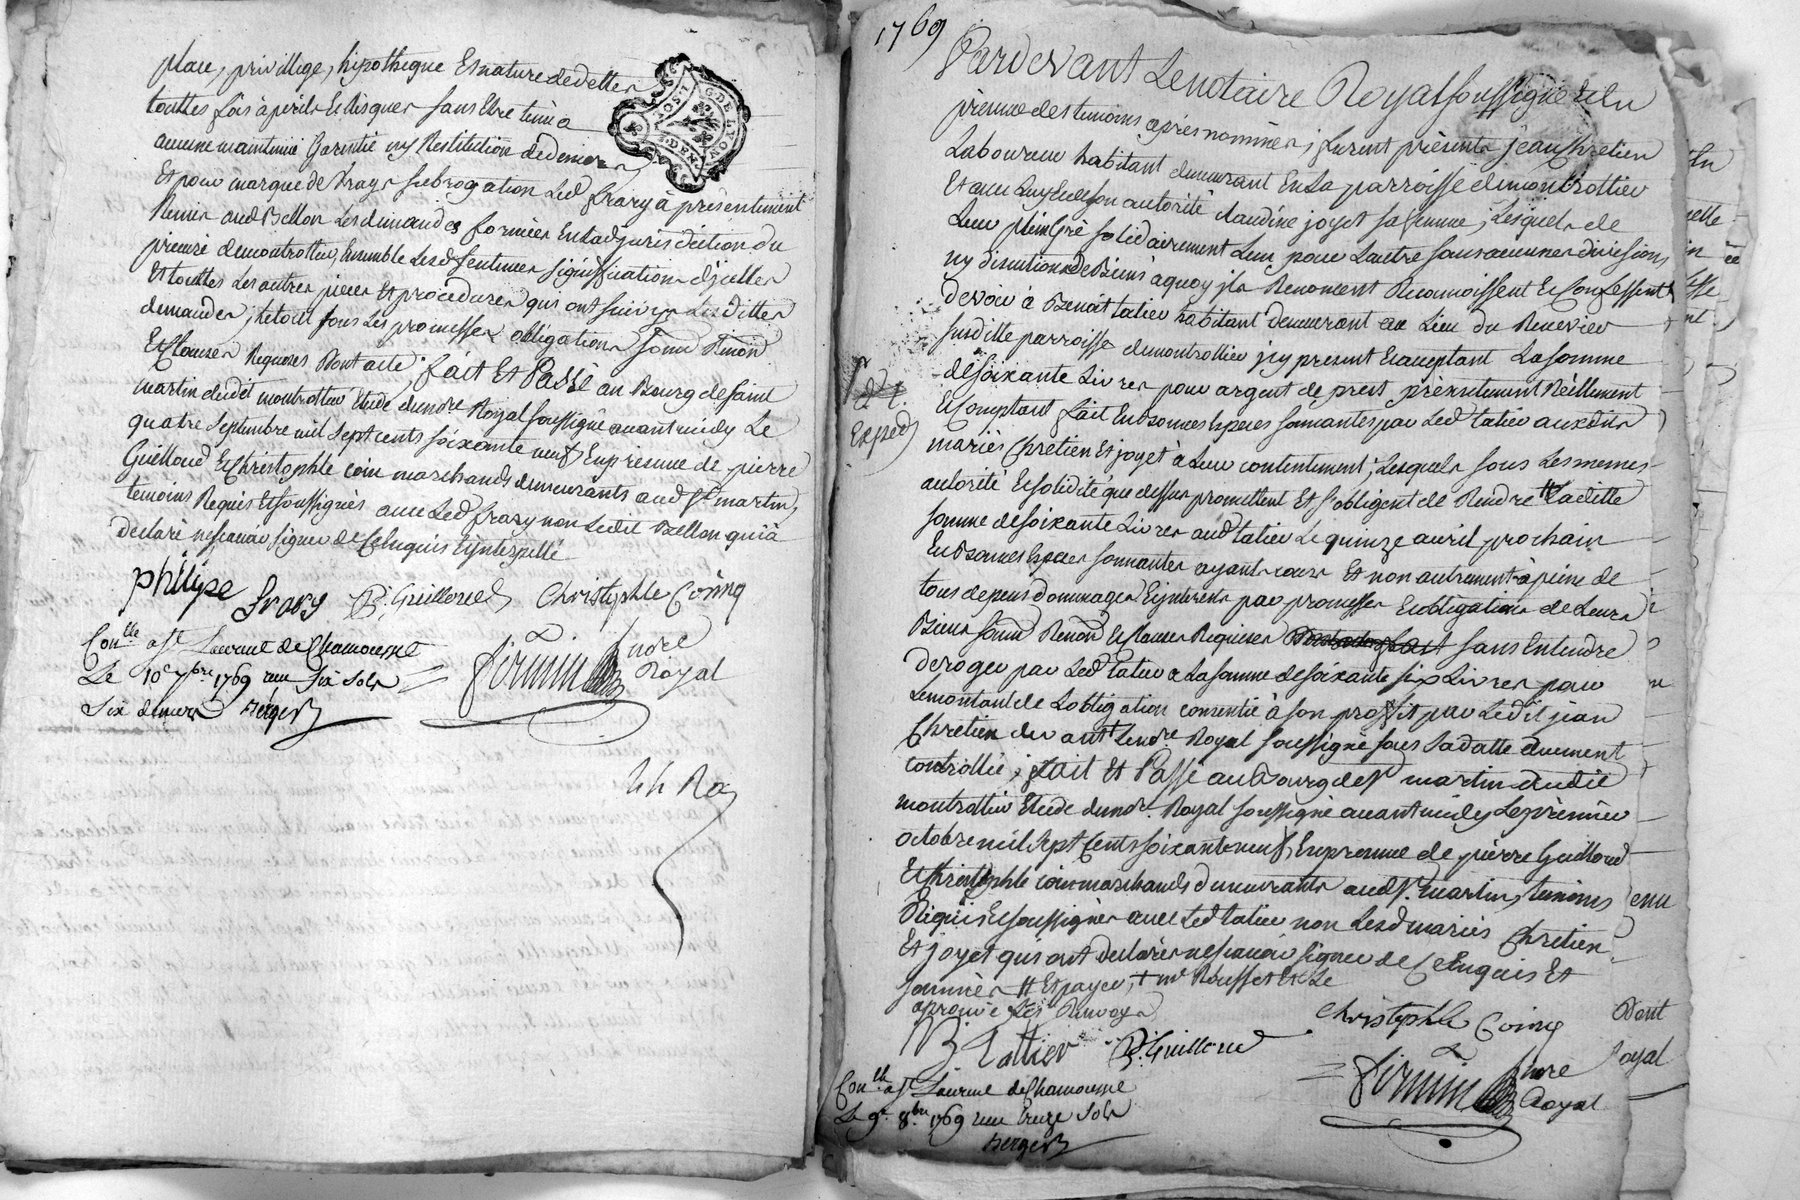 place, privillege, hipotheque Et nature de dette
touttes fois à perils Et Risques sans Etre tenu a
aucune maintenüe Garentie ny Restitution de deniers
Et pour marque de vraye subrogation Led frary à présentement
Remis aud Bellon Les demandes formées En Ladjurisdiction du
prieuré de montrottier, Ensemble Lesd sentences signiffication d'jcelles
Et touttes Les autres pieces Et procedures qui ont suivi Lesdittes
demandes, Le tout sous Les promesses obligations soum Renon
Et Clauses Requises Dont acte, fait Et Passé au Bourg de saint
martin dudit montrottier Etude du nore Royal soussigné avant midy Le
quatre septembre mil sept cents soixante neuf En presence de pierre
Guilloud Et Christophle coin marchands demeurants aud St martin,
temoins Requis Et soussignés avec Led frary non Ledit Bellon qui à
declaré ne scavoir signer de Ce Enquis Et jnterpellé
philipe frary P. Guilloud Christophle Coing
Conlle a St Laurent de Chamousset
Le 10e 7bre 1769 reçu six sols
six deniers Berger
firmin nore
Royal
GDE LYON
1769
Pardevant Le notaire Royal soussigné Et En
presence des temoins après nommés, furent présents jean Chretien
Laboureur habitant demeurant En La parroisse de montrottier
Et avec Luy Et de son autorité claudine joyet sa femme, Lesquels de
Leur plein Gré solidairement L'un pour Lautre sans aucunes divisions
ny discution de Biens à quoy jls Renoncent Reconnoissent Et Confessent
devoir à Benoit tatier habitant demeurant au Lieu du Reuevier
susditte parroisse de montrottier jcy present Et acceptant La somme
de soixante Livres pour argent de prest présentement Réellement
Et Comptant fait En Bonnes Especes sonnantes par Led tatier auxdits
mariés Chretien Et joyet à Leur contentement, Lesquels sous Les memes
autorité Et solidité que dessus promettent Et s'obligent de Rendre # Laditte
somme de soixante Livres aud tatier Le quinze avril prochain
En Bonnes Especes sonnantes ayant cours Et non autrement à peine de
tous depens dommages Et jnterets par promesses Et obligations de Leurs
Biens soum Renon Et Clauses Requises sans Entendre
deroger par Led tatier a La somme de soixante six Livres pour
Le montant de L'obligation consentie à son proffit par Ledit jean
Chretien devant Le nore Royal soussigné sous sa datte duement
controllée, fait Et Passé au Bourg de St martin dudit
montrottier Etude du nore. Royal soussigné avant midy Le premier
octobre mil sept Cents soixante neuf, En presence de pierre Guilloud
Et Christophle coin marchands demeurants aud St. martin, temoins
Requis Et soussignés avec Led tatier non Lesd mariés Chretien
Et joyet qui ont declarés ne scavoir signer de Ce Enquis Et
sommés # Et payer, + me Rousset Et Le
aprouvé Les Renvoys
Exped
B tattier P. Guilloud
Christophle Coing
Conlle a St Laurent de Chamousset
Le 9e 8bre 1769 reçu treze sols
Berger
firmin nore
Royal
Dont
Royal